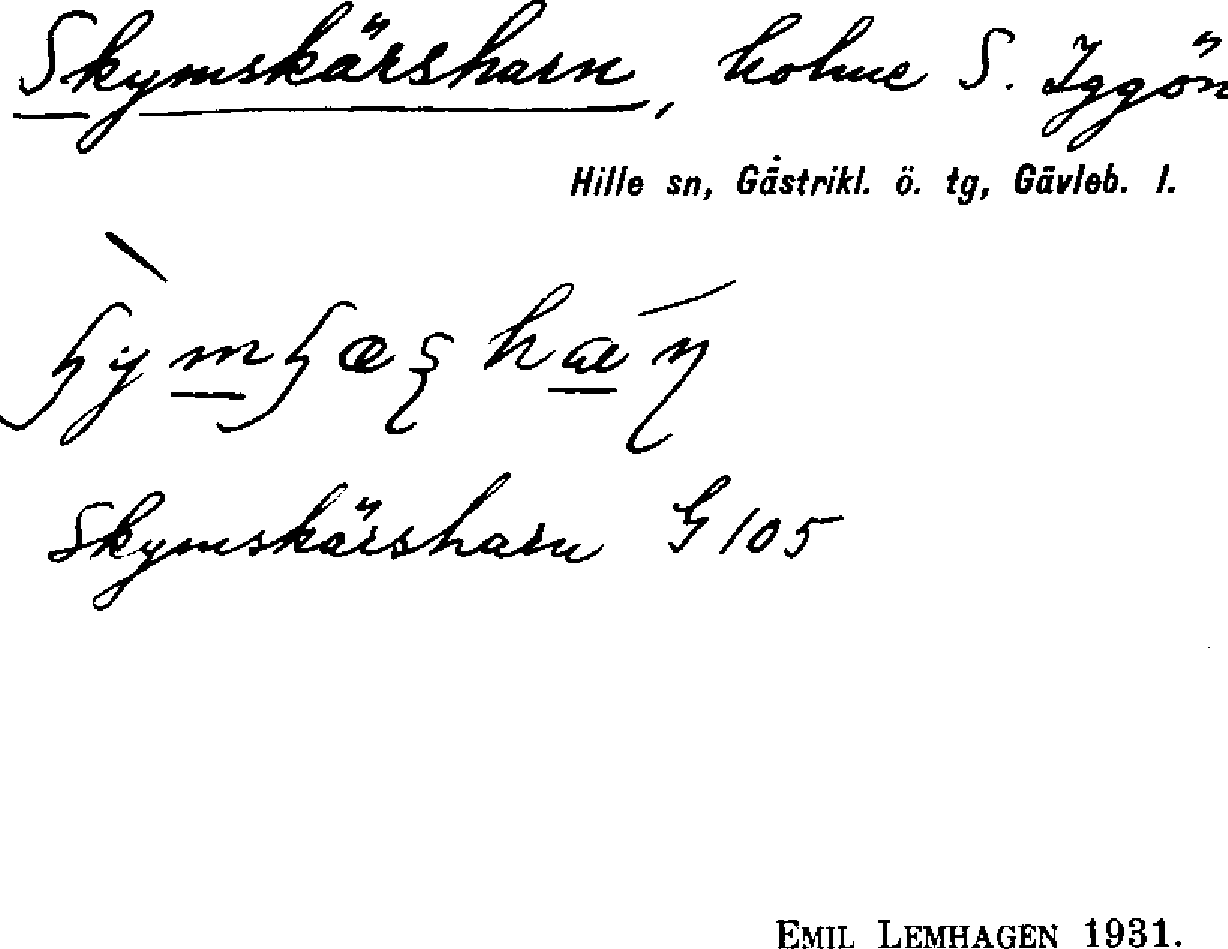 Skymskärsharn, holme S. Iggön
Hille sn, Gästrikl. ö. tg, Gävleb. l.
Skymskärsharn G 105
EMIL LEMHAGEN 1931.